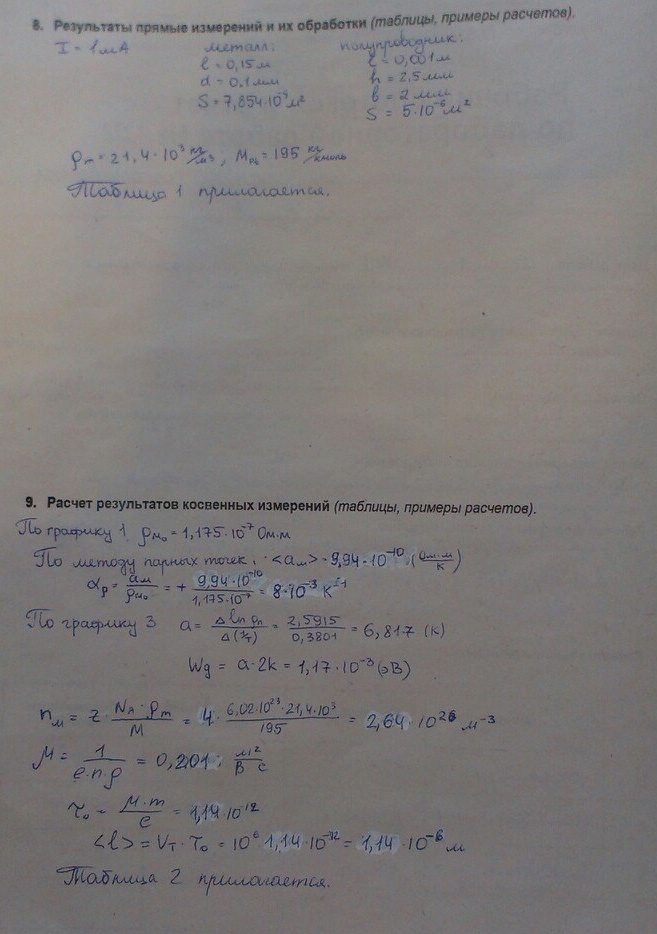 8. Результаты прямые измерений и их обработки (таблицы, примеры расчетов).
I = 1мА металл: полупроводник:
l = 0,15м l = 0,001м
d = 0,1мм h = 2,5мм
S = 7,854·10⁻⁹м² b = 2мм
S = 5·10⁻⁶м²
ρm = 21,4·10³ кг/м³, MPt = 195 кг/кмоль
Таблица 1 прилагается.
9. Расчет результатов косвенных измерений (таблицы, примеры расчетов).
По графику 1 ρм₀ = 1,175·10⁻⁷ Ом·м
По методу парных точек, <aм> = 9,94·10⁻¹⁰ (Ом·м/К)
αρ = aм/ρм₀ = + 9,94·10⁻¹⁰/1,175·10⁻⁷ = 8·10⁻³ К⁻¹
По графику 3 a = Δ ln ρп/Δ(1/T) = 2,5915/0,3801 = 6,817 (К)
Wg = a·2k = 1,17·10⁻³ (эВ)
nм = z · NA·ρm/M = 4 · 6,02·10²³·21,4·10³/195 = 2,64·10²⁶ м⁻³
μ = 1/e·n·ρ = 0,201 м²/В·с
τ₀ = μ·m/e = 1,14·10⁻¹²
<l> = VT · τ₀ = 10⁶ 1,14·10⁻¹² = 1,14·10⁻⁶ м
Таблица 2 прилагается.